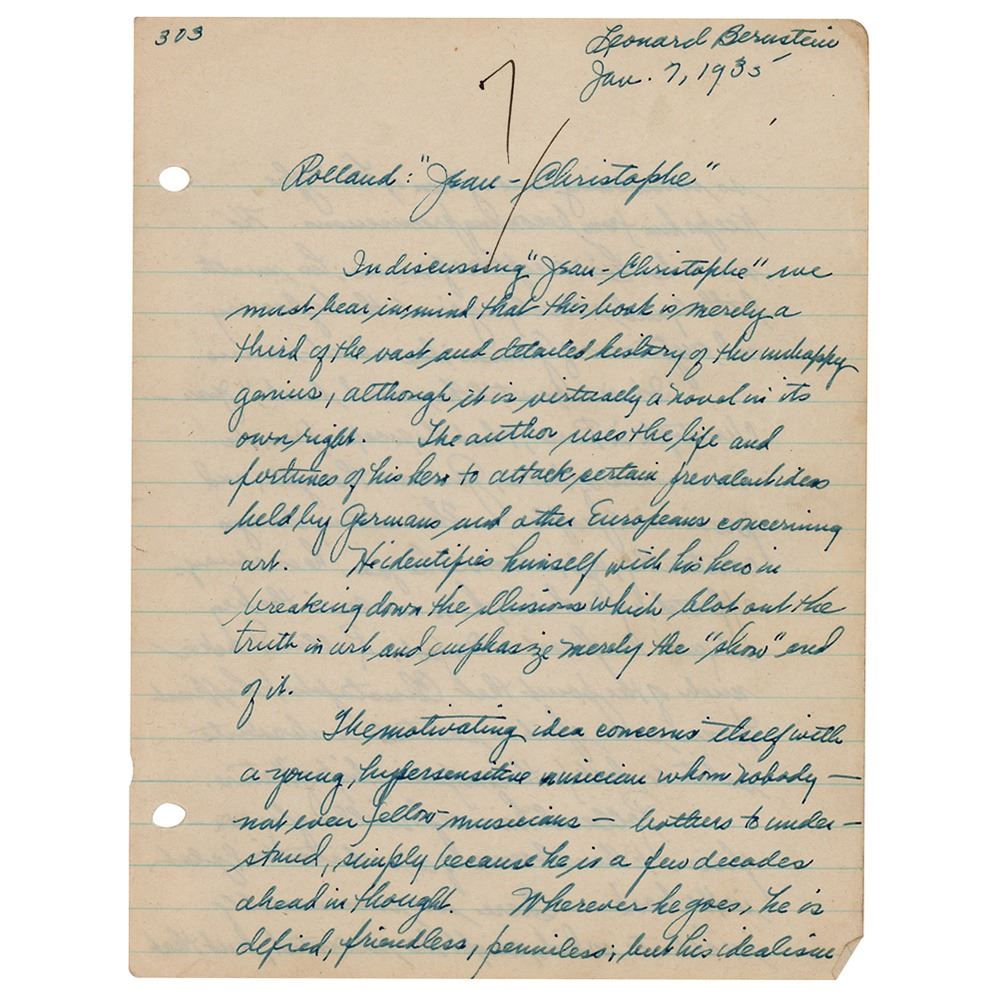 303
Leonard Bernstein
Jan. 7, 1935
Rolland: "Jean-Christophe"
In discussing "Jean-Christophe" we
must bear in mind that this book is merely a
third of the vast and detailed history of the unhappy
genius, although it is virtually a novel in its
own right. The author uses the life and
fortunes of his hero to attack certain prevalent ideas
held by Germans and other Europeans concerning
art. He identifies himself with his hero in
breaking down the illusions which blot out the
truth in art and emphasize merely the "show" end
of it.
The motivating idea concerns itself with
a young, hypersensitive musician whom nobody —
not even fellow musicians — bothers to under-
stand, simply because he is a few decades
ahead in thought. Wherever he goes, he is
defied, friendless, penniless; but his idealism